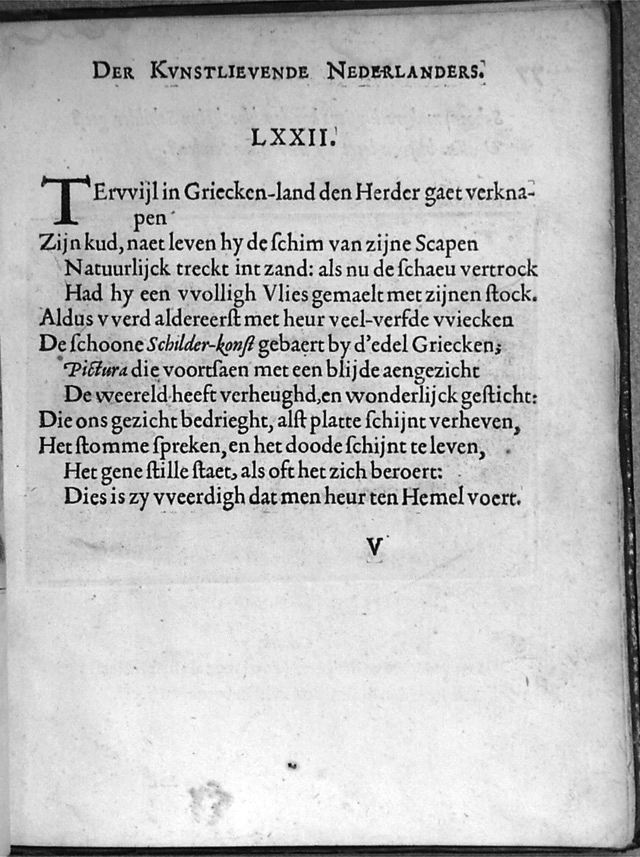 DER KVNSTLIEVENDE NEDERLANDERS.
LXXII.
TErvvijl in Griecken-land den Herder gaet verkna-
pen
Zijn kud, naet leven hy de ſchim van zijne Scapen
Natuurlijck treckt int zand: als nu de ſchaeu vertrock
Had hy een vvolligh Vlies gemaelt met zijnen ſtock.
Aldus vverd aldereerſt met heur veel-verfde vviecken
De ſchoone Schilder-konſt gebaert by d'edel Griecken;
Pictura die voortſaen met een blijde aengezicht
De weereld heeft verheughd, en wonderlijck geſticht:
Die ons gezicht bedrieght, alſt platte ſchijnt verheven,
Het ſtomme ſpreken, en het doode ſchijnt te leven,
Het gene ſtille ſtaet, als oft het zich beroert:
Dies is zy vveerdigh dat men heur ten Hemel voert.
V